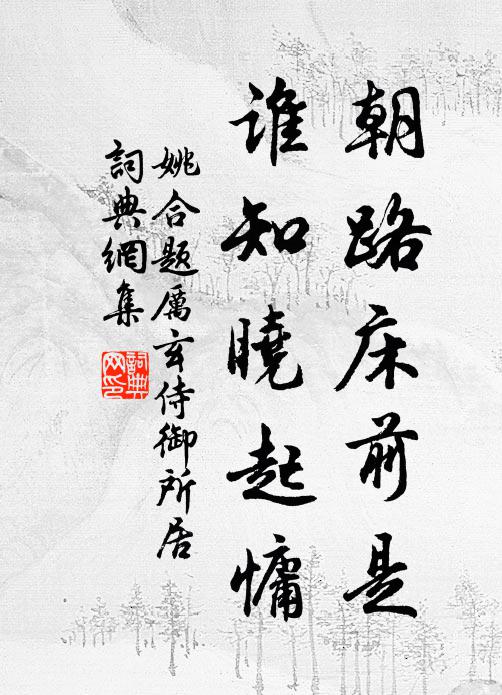 朝路床前是
谁知曉起慵
姚合题厲玄侍御所居
詞典網集
詞典网印